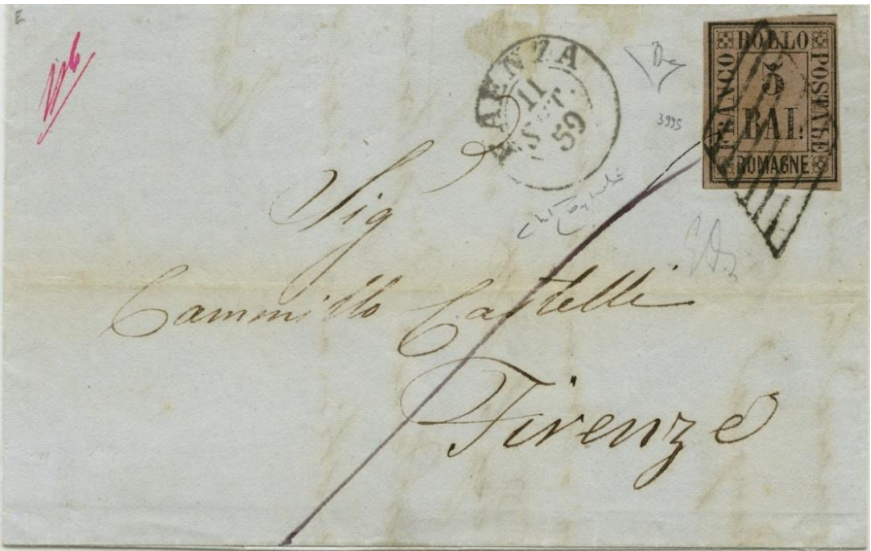 FAENZA
11
SET.
59
3995
FRANCO BOLLO POSTALE
5
BAI.
ROMAGNE
Sig
Cammillo Castelli
Firenze